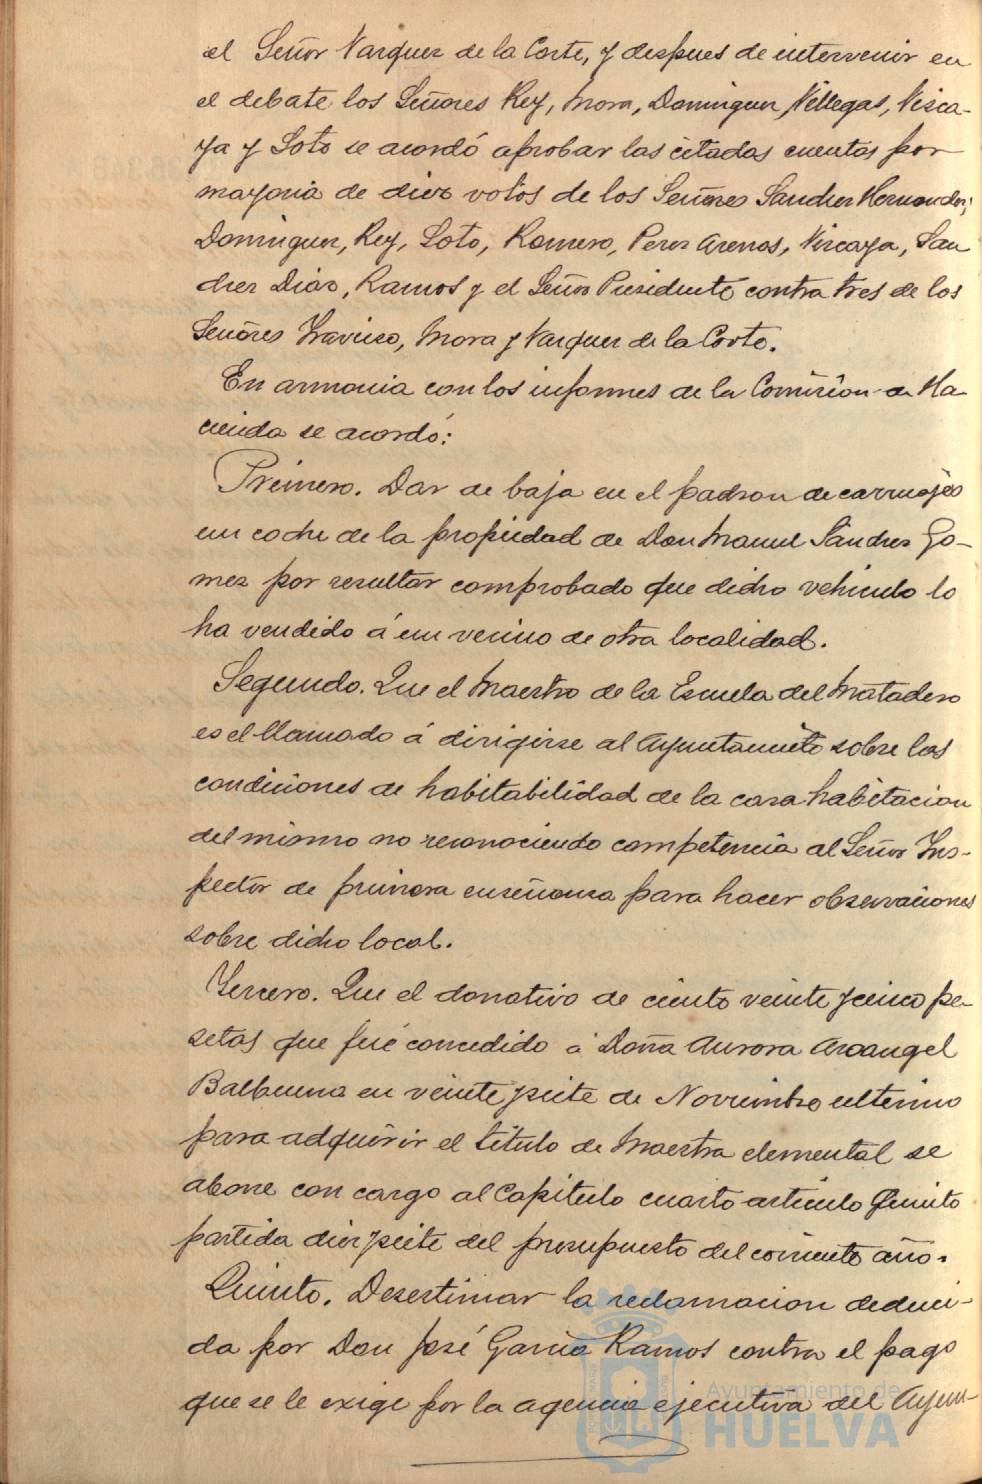 el Señor Vazquez de la Corte, y despues de intervenir en
el debate los Señores Rey, Mora, Dominguez, Villegas, Visca-
ya y Soto se acordó aprobar las citadas cuentas por
mayoria de diez votos de los Señores Sanchez Hernandez,
Dominguez, Rey, Soto, Romero, Perez Arenas, Viscaya, San
chez Diaz, Ramos y el Señor Presidente contra tres de los
Señores Travieso, Mora y Vazquez de la Corte.
En armonia con los informes de la Comision de Ha
cienda se acordó:
Primero. Dar de baja en el padron de carruajes
un coche de la propiedad de Don Manuel Sanchez Go-
mez por resultar comprobado que dicho vehiculo lo
ha vendido á un vecino de otra localidad.
Segundo. Que el Maestro de la Escuela del Matadero
es el llamado á dirigirse al Ayuntamiento sobre las
condiciones de habitabilidad de la casa habitacion
del mismo no reconociendo competencia al Señor Ins-
pector de primera enseñanza para hacer observaciones
sobre dicho local.
Tercero. Que el donativo de ciento veinte y cinco pe-
setas que fué concedido á Doña Aurora Arcangel
Balbuena en veinte y siete de Noviembre ultimo
para adquirir el titulo de Maestra elemental se
abone con cargo al Capitulo cuarto articulo Quinto
partida diez y siete del presupuesto del corriente año.
Quinto. Desestimar la reclamacion deduci-
da por Don José Garcia Ramos contra el pago
que se le exige por la agencia ejecutiva del Ayun-
Ayuntamiento de
HUELVA